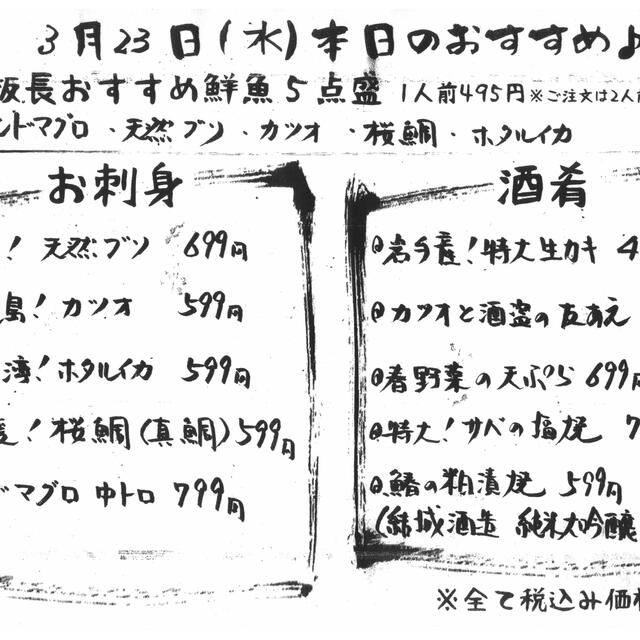 3月23日(水)本日のおすすめ♪
板長おすすめ鮮魚5点盛 1人前495円 ※ご注文は2人前
ンドマグロ ・天然ブリ ・カツオ ・桜鯛 ・ホタルイカ
お刺身
! 天然ブリ 699円
島! カツオ 599円
湾! ホタルイカ 599円
! 桜鯛(真鯛) 599円
ドマグロ 中トロ 799円
酒肴
岩手産! 特大生カキ 4
カツオと酒盗の友あえ
春野菜の天ぷら 699円
特大! サバの塩焼 7
鰆の粕漬焼 599円
(結城酒造 純米大吟醸
※全て税込み価格